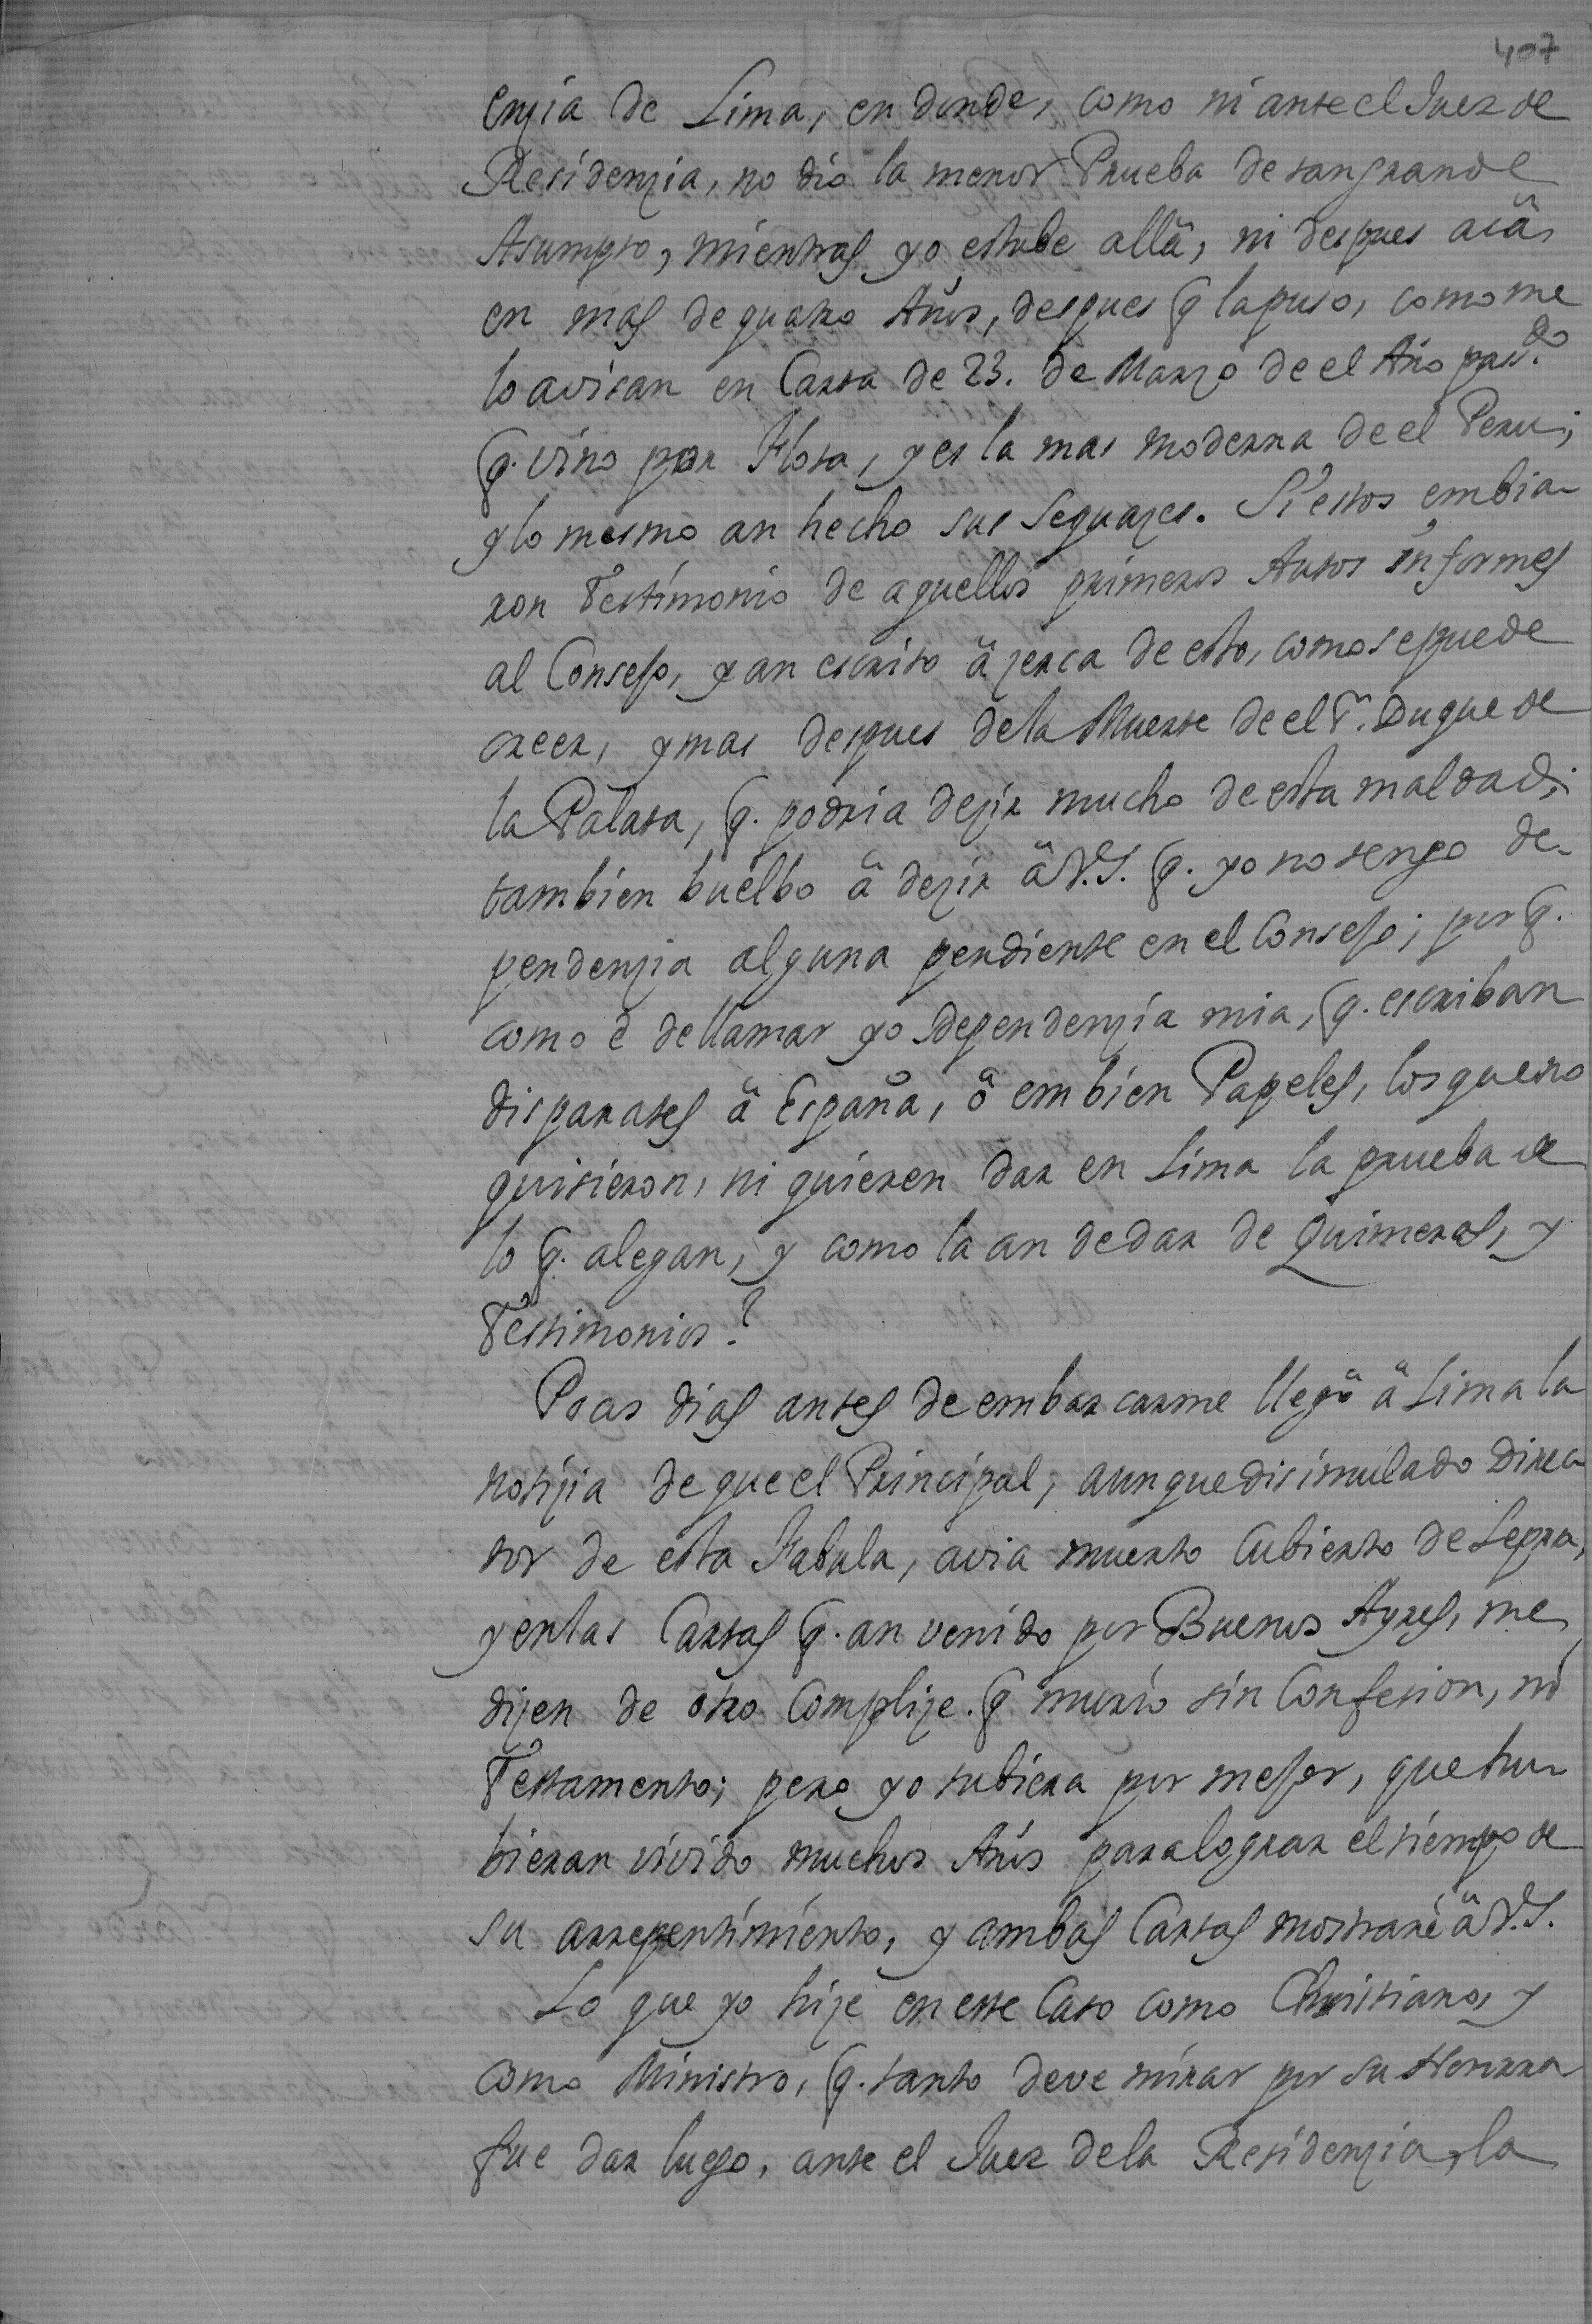 407
enzia de Lima, en donde, como ni ante el Juez de
Residenzia, no dio la menor Prueba de tan grande
Asumpto, mientras yo estube allâ, ni despues acâ,
en mas de quatro Años, despues q̃ la puso, como me
lo avisan en Carta de 23. de Marzo de el Año pas.do
q. vino por Flota, y es la mas moderna de el Peru;
y lo mesmo an hecho sus Sequazes. Si estos embia-
ron Testimonio de aquellos primeros Autos informes
al Consejo, y an escrito â zerca de esto, como se puede
creer, y mas despues de la Muerte de el Sr. Duque de
la Palata, q. podria dezir mucho de esta maldad;
tambien buelbo â dezir â V.S. q. yo no tengo de-
pendenzia alguna pendiente en el Consejo; por q.
como è de llamar yo dependenzia mia, q. escriban
disparates â España, ô embien Papeles, los que no
quisieron, ni quieren dar en Lima la prueba de
lo q. alegan, y como la an de dar de Quimeras, y
Testimonios?
Pocos dias antes de embarcarme llegô â Lima la
notizia de que el Principal, aunque disimulado Direc-
tor de esta Fabula, avia muerto Cubierto de Lepra,
y en las Cartas q. an venido por Buenos Ayres, me
dizen de otro Complize. q̃ murio sin Confesion, ni
Testamento; pero yo tubiera por mejor, que hu-
bieran vivido muchos Años para lograr el tiempo de
su arrepentimiento, y ambas Cartas mostraré â V.S.
Lo que yo hize en este Caso como Christiano, y
como Ministro, q. tanto deve mirar por su Honrra
fue dar luego, ante el Juez de la Residenzia, la